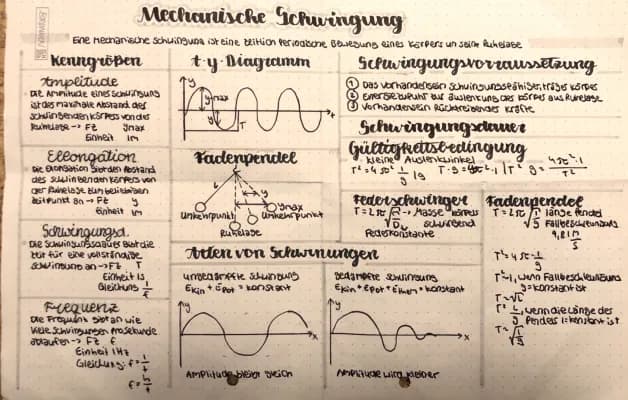 Mechanische Schwingung
Eine mechanische Schwingung ist eine zeitlich periodische Bewegung eines Körpers um seine Ruhelage
Kenngrößen
Amplitude
Die Amplitude einer Schwingung
ist das maximale Abstand des
schwingenden Körpers von der
Ruhelage -> FZ ymax
Einheit 1m
Ellongation
Die Elongation gibt den Abstand
des schwingenden Körpers von
der Ruhelage zum beliebigen
Zeitpunkt an -> FZ y
Einheit 1m
Schwingungsd.
Die Schwingungsdauer gibt die
Zeit für eine vollständige
Schwingung an -> FZ T
Einheit 1s
Gleichung 1/f
Frequenz
Die Frequenz gibt an wie
viele Schwingungen pro Sekunde
ablaufen -> FZ f
Einheit 1Hz
Gleichung: f = 1/t
f = n/t
t-y-Diagramm
y
ymax
T
t
Fadenpendel
l
y
ymax
Umkehrpunkt
Umkehrpunkt
Ruhelage
Schwingungsvoraussetzung
1 Das Vorhandensein schwingungsfähiger, träger Körper
2 Energiezufuhr zur Auslenkung des Körpers aus Ruhelage
3 Vorhandensein rücktreibender Kräfte
Schwingungsdauer
Gültigkeitsbedingung
kleine Auslenkwinkel
T² = 4π² · l/g |g T · g = 4π² · l |T² g = 4π² · l/T²
Federschwinger
T = 2π √m/D -> Masse Körpers
schwingend
Federkonstante
Fadenpendel
T = 2π √l/g länge Pendel
Fallbeschleunigung
9,81 m/s
T² = 4π · l/g
T² ~ l, wenn Fallbeschleunigung
g = konstant ist
T ~ √l
T² ~ 1/g, wenn die Länge des
Pendels l = konstant ist
T ~ √1/g
Arten von Schwinungen
ungedämpfte Schwingung
Ekin + Epot = konstant
y
x
Amplitude bleibt gleich
gedämpfte Schwingung
Ekin + Epot + Etherm = konstant
y
x
Amplitude wird kleiner